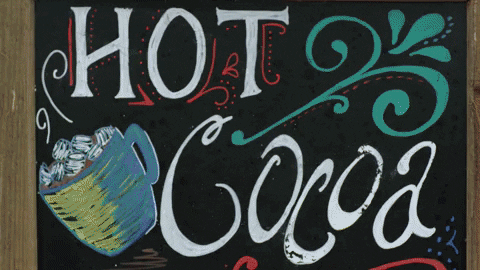 HOT
Cocoa